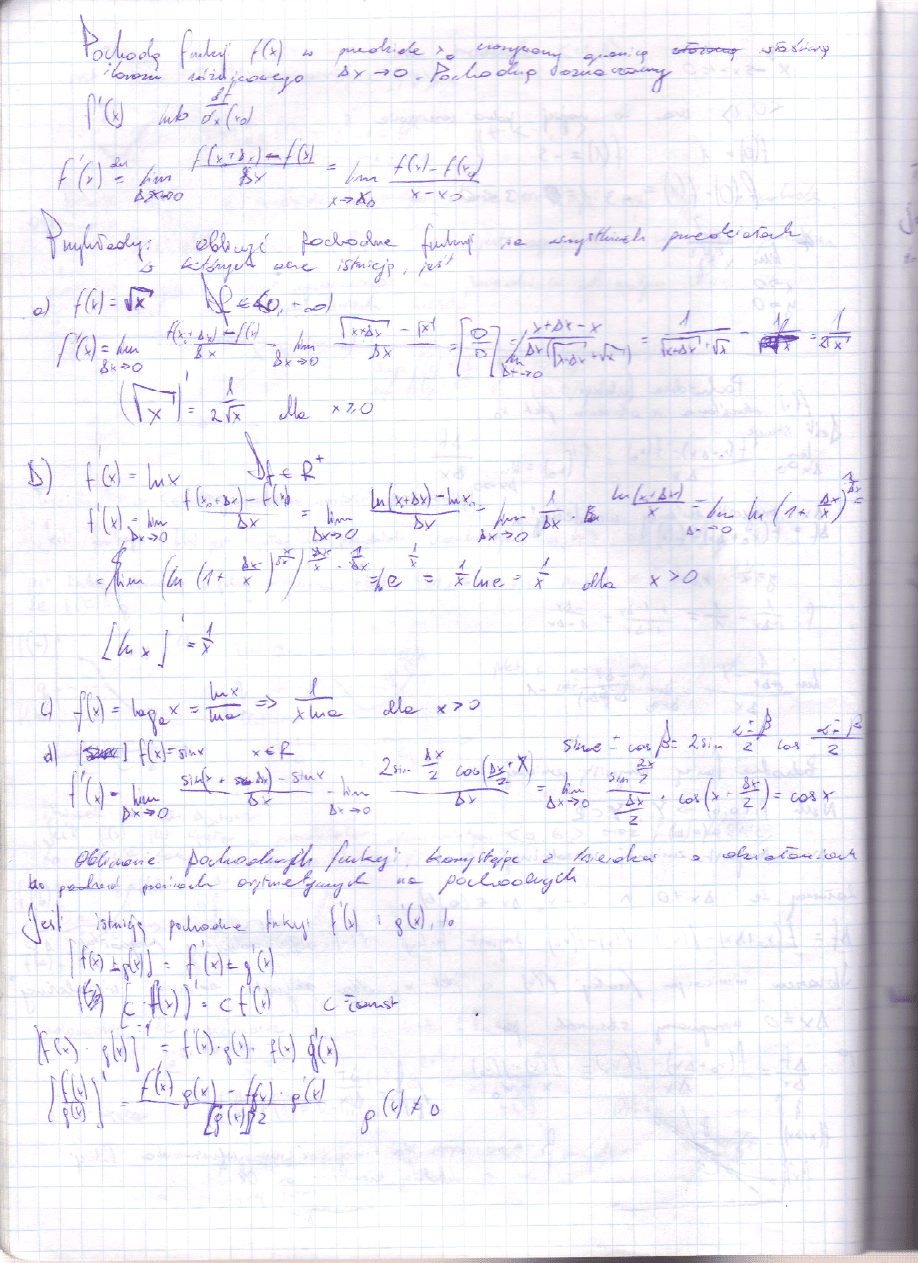 Pochodą funkcji f(x) w punkcie x₀ nazywamy granicę właściwą
ilorazu różnicowego Δx→0. Pochodną oznaczamy
f'(x) lub df/dx (x₀)
f'(x) = lim Δx→0 (f(x₀+Δx) - f(x))/Δx = lim x→x₀ (f(x) - f(x₀))/(x-x₀)
Przykłady: obliczyć pochodne funkcji we wszystkich punktach
w których one istnieją, jeśli
a) f(x) = √x Df ∈ <0, +∞)
f'(x) = lim Δx→0 (f(x+Δx) - f(x))/Δx = lim Δx→0 (√(x+Δx) - √x)/Δx = [0/0] = lim Δx→0 (x+Δx-x)/(Δx(√(x+Δx)+√x)) = 1/(√(x+Δx)·√x) = = 1/(2√x)
(√x)' = 1/(2√x) dla x≥0
b) f'(x) = lnx Df ∈ R⁺
f'(x) = lim Δx→0 (f(x₀+Δx) - f(x₀))/Δx = lim Δx→0 (ln(x+Δx) - lnx)/Δx = lim Δx→0 1/Δx · ln(x+Δx)/x = lim Δx→0 ln(1+Δx/x)^(1/Δx) =
= lim (ln(1+Δx/x)^(x/Δx))^(Δx/x · 1/Δx) = ln e^(1/x) = 1/x lne = 1/x dla x>0
[lnx]' = 1/x
c) f(x) = logₐx = lnx/lna => 1/(x lna) dla x>0
d) f(x) = sinx x∈R sinα - cosβ = 2sin (α-β)/2 cos (α+β)/2
f'(x) = lim Δx→0 (sin(x+Δx) - sinx)/Δx = lim Δx→0 (2sin Δx/2 cos(Δx/2+x))/Δx = lim Δx→0 (sin Δx/2)/(Δx/2) · cos(x-Δx/2) = cosx
Obliczanie pochodnych funkcji, korzystając z o działaniach
arytmetycznych na pochodnych
Jeśli istnieją pochodne funkcji f'(x) i g'(x), to
[f(x) ± g(x)]' = f'(x) ± g'(x)
[c·f(x)]' = cf'(x) c = const
[f(x) · g(x)]' = f'(x)·g(x)· f(x) g'(x)
[f(x)/g(x)]' = (f'(x) g(x) - f(x)·g'(x))/[g(x)]² g(x) ≠ 0